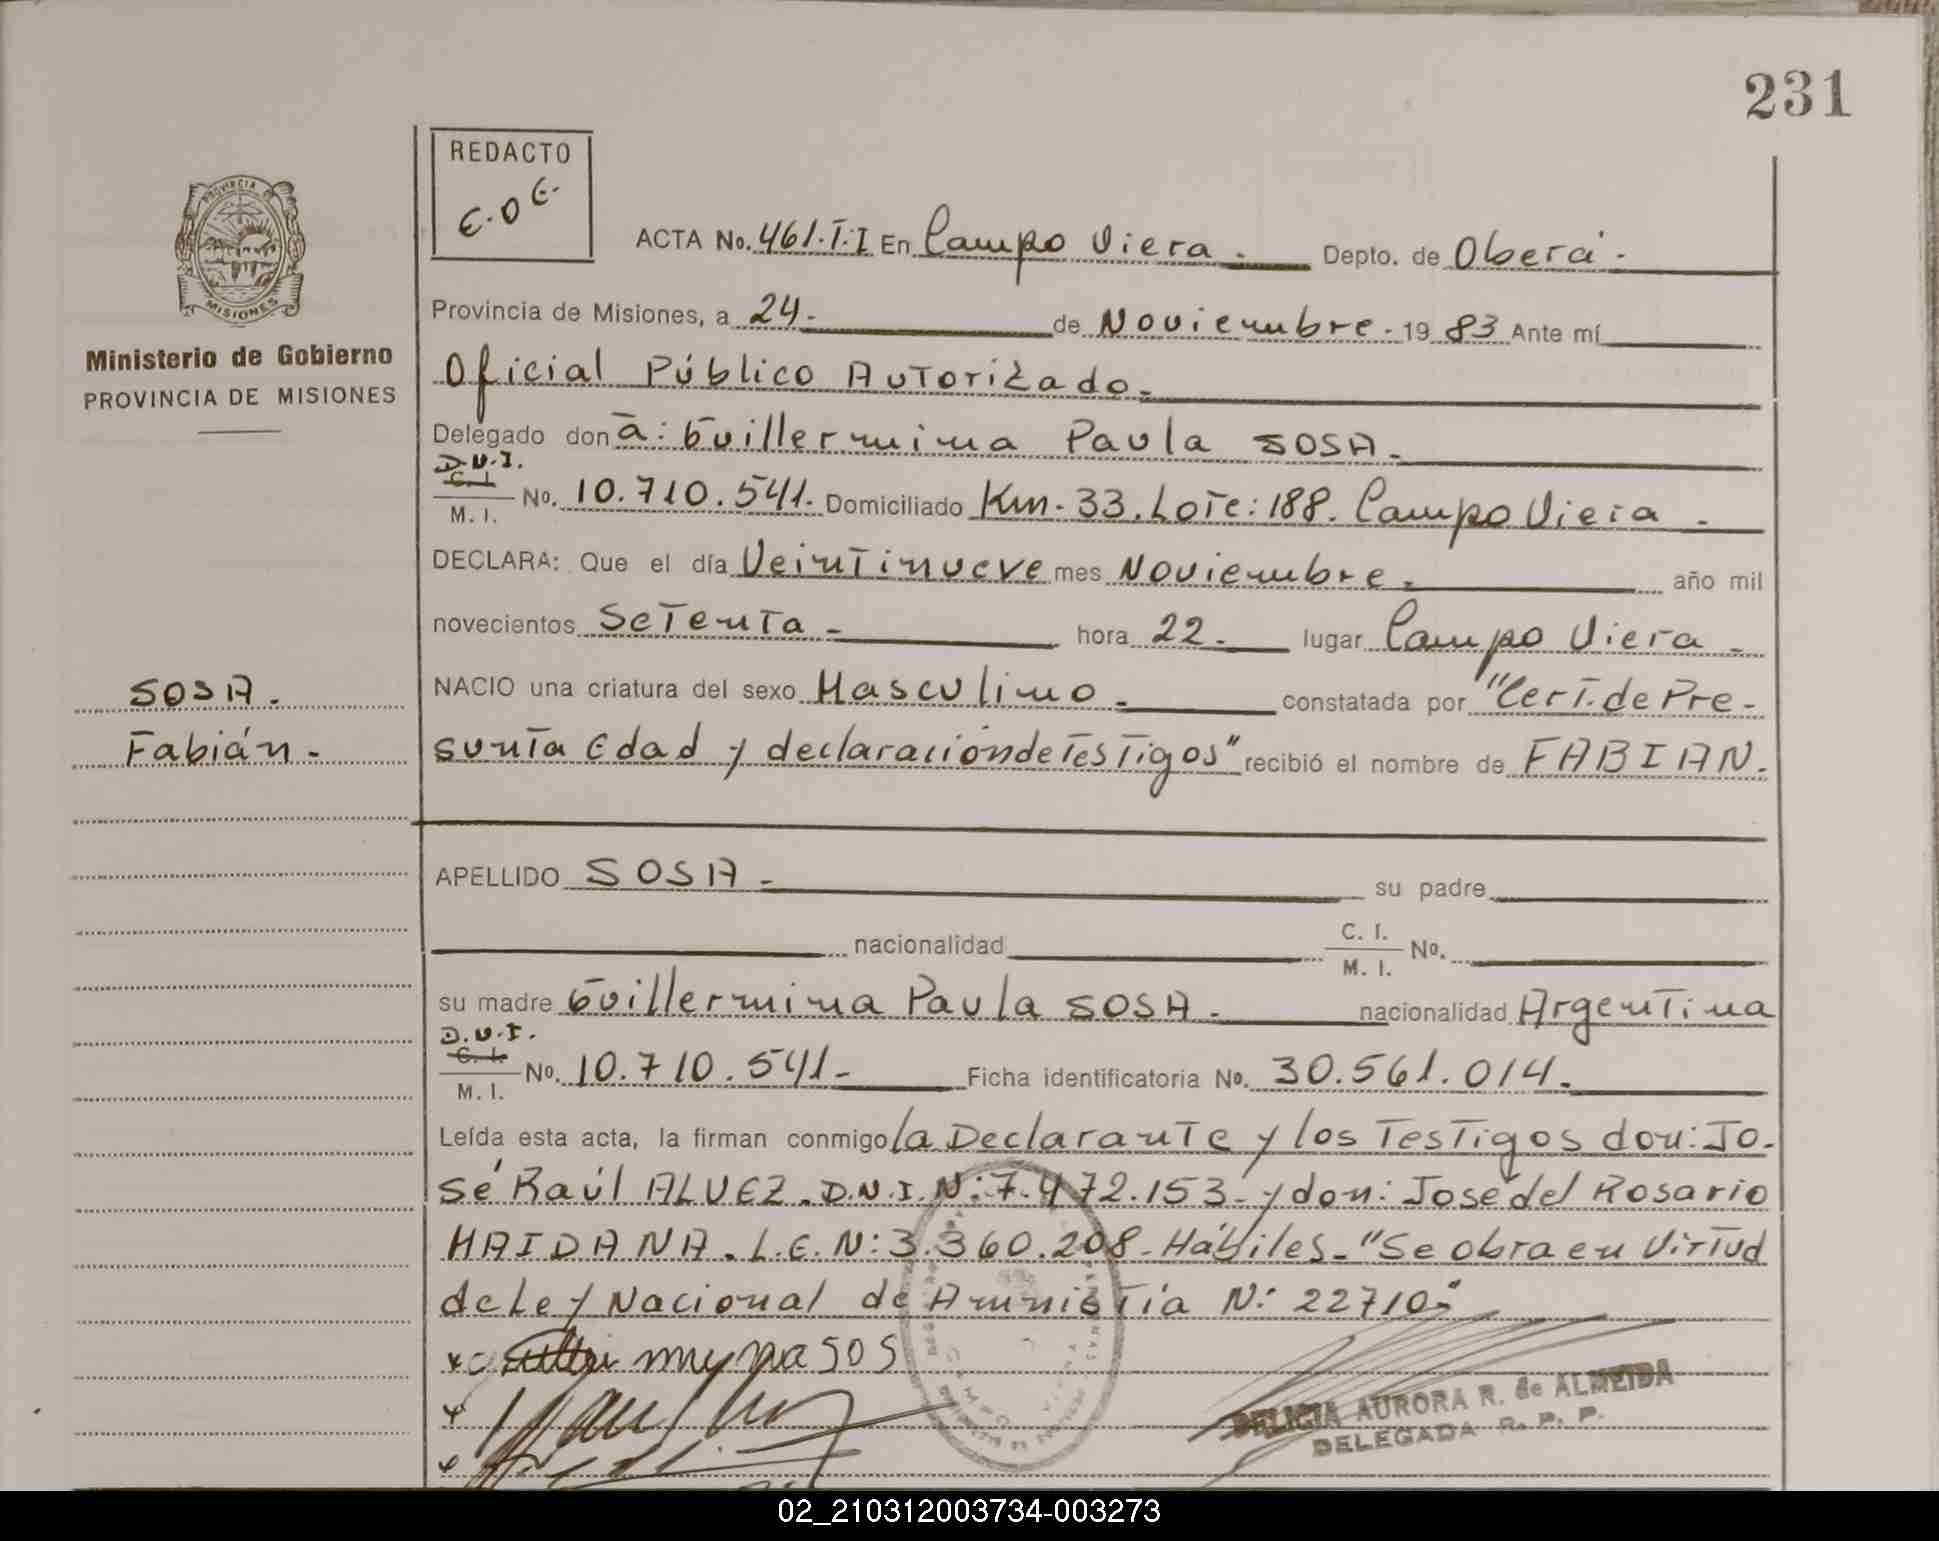 231
REDACTO
E.D.E.
PROVINCIA DE
MISIONES
Ministerio de Gobierno
PROVINCIA DE MISIONES
ACTA No. 461.T.I En Campo Viera. Depto. de Oberá.
Provincia de Misiones, a 24. de Noviembre. 19 83 Ante mí
Oficial Público Autorizado.
Delegado don a: Guillermina Paula SOSA.
D.N.I.
C. I.
M. I.
No. 10.710.541. Domiciliado Km. 33. Lote: 188. Campo Viera.
DECLARA: Que el día Veintinueve mes Noviembre. año mil
novecientos Setenta. hora 22. lugar Campo Viera.
SOSA.
Fabián.
NACIO una criatura del sexo Masculino. constatada por "Cert. de Pre-
sunta Edad y declaración de Testigos" recibió el nombre de FABIAN.
APELLIDO SOSA. su padre
nacionalidad C. I. M. I. No.
su madre Guillermina Paula SOSA. nacionalidad Argentina
D.N.I.
C. I.
M. I.
No. 10.710.541. Ficha identificatoria No. 30.561.014.
Leída esta acta, la firman conmigo la Declarante y los Testigos don: Jo-
sé Raúl ALVEZ. D.N.I.N: 7.472.153. y don: José del Rosario
MAIDANA. L.E.N: 3.360.208. Hábiles. "Se obra en Virtud
de Ley Nacional de Amnistía N: 22710."
DELICIA AURORA R. de ALMEIDA
DELEGADA R. P. P.
02_210312003734-003273